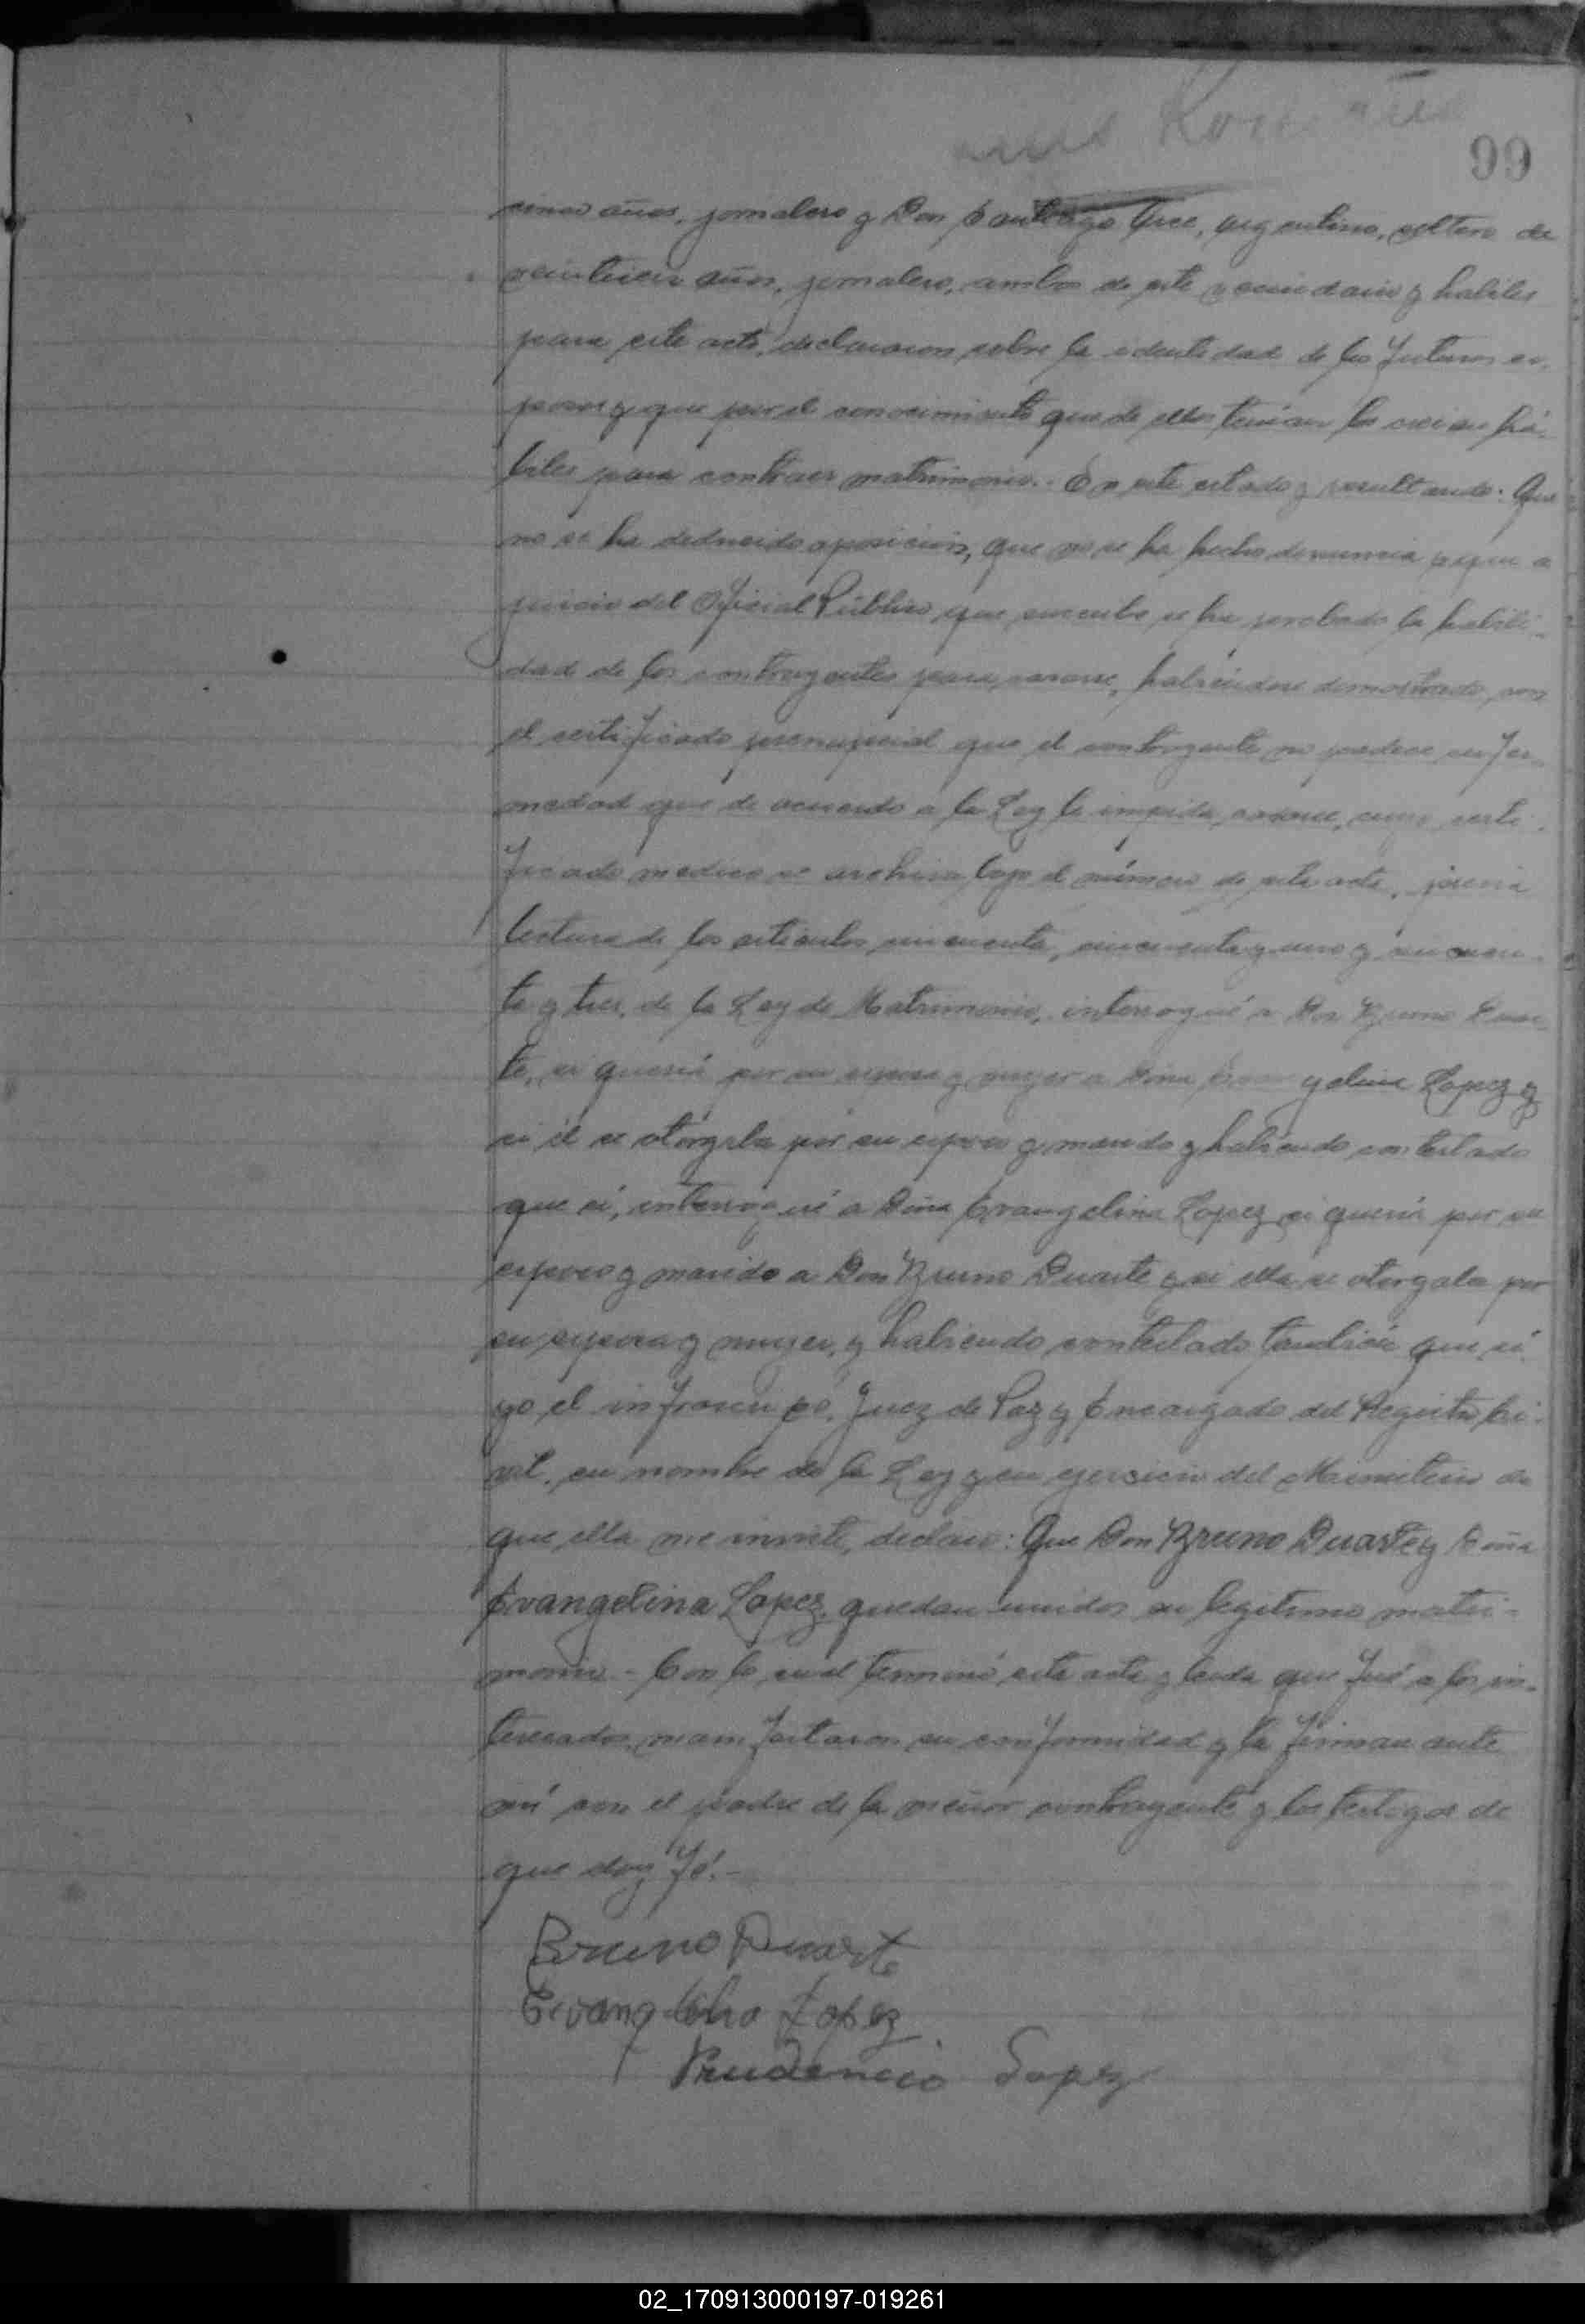 99
cinco años, jornalero y Don Santiago , argentino, soltero de
veintiseis años, jornalero, ambos de este vecindario y habiles
para este acto, declararon sobre la identidad de los futuros es-
posos y que por el conocimiento que de ellos tenian los creian há-
biles para contraer matrimonio.- En este estado y resultando: Que
no se ha deducido oposición, que no se ha hecho denuncia y que a
juicio del Oficial Público que suscribe se ha probado la habili-
dad de los contrayentes para casarse, habiéndose demostrado, con
el certificado prenupcial que el contrayente no padece enfer-
medad que de acuerdo a la Ley le impida casarse, cuyo certi-
ficado medico se archiva bajo el número de esta acta, previa
lectura de los articulos cincuenta, cincuenta y uno y cincuen-
ta y tres, de la Ley de Matrimonio, interrogué a Don Bruno Duar-
te, si queria por su esposa y mujer a Doña Evangelina Lopez y
si él se otorgaba por su esposo y marido y habiendo contestado
que si, interrogué a Doña Evangelina Lopez si queria por su
esposo y marido a Don Bruno Duarte y si ella se otorgaba por
su esposa y mujer, y habiendo contestado también que si
yo, el infrascripto, Juez de Paz y Encargado del Registro Ci-
vil, en nombre de la Ley y en ejersicio del Ministerio de
que ella me inviste, declaro: Que Don Bruno Duarte y Doña
Evangelina Lopez, quedan unidos en legitimo matri-
monio.- Con lo cual terminó esta acta y leida que fué a los in-
teresados, manifestaron su conformidad y la firman ante
mi con el padre de la menor contrayente y los testigos de
que doy fé.-
Bruno Duarte
Evangelina Lopez
Prudencio Lopez
02_170913000197-019261